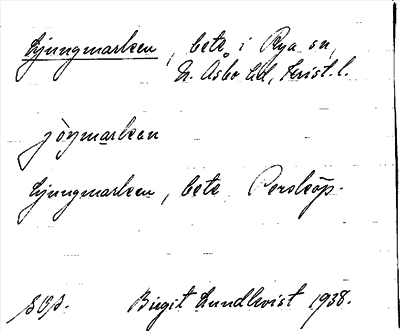 Ljungmarken, bete i Rya sn,
N. Åsbo hd, Krist. l.
jòŋmarken
Ljungmarken, bete, Perstorp.
Birgit Lundkvist 1938.